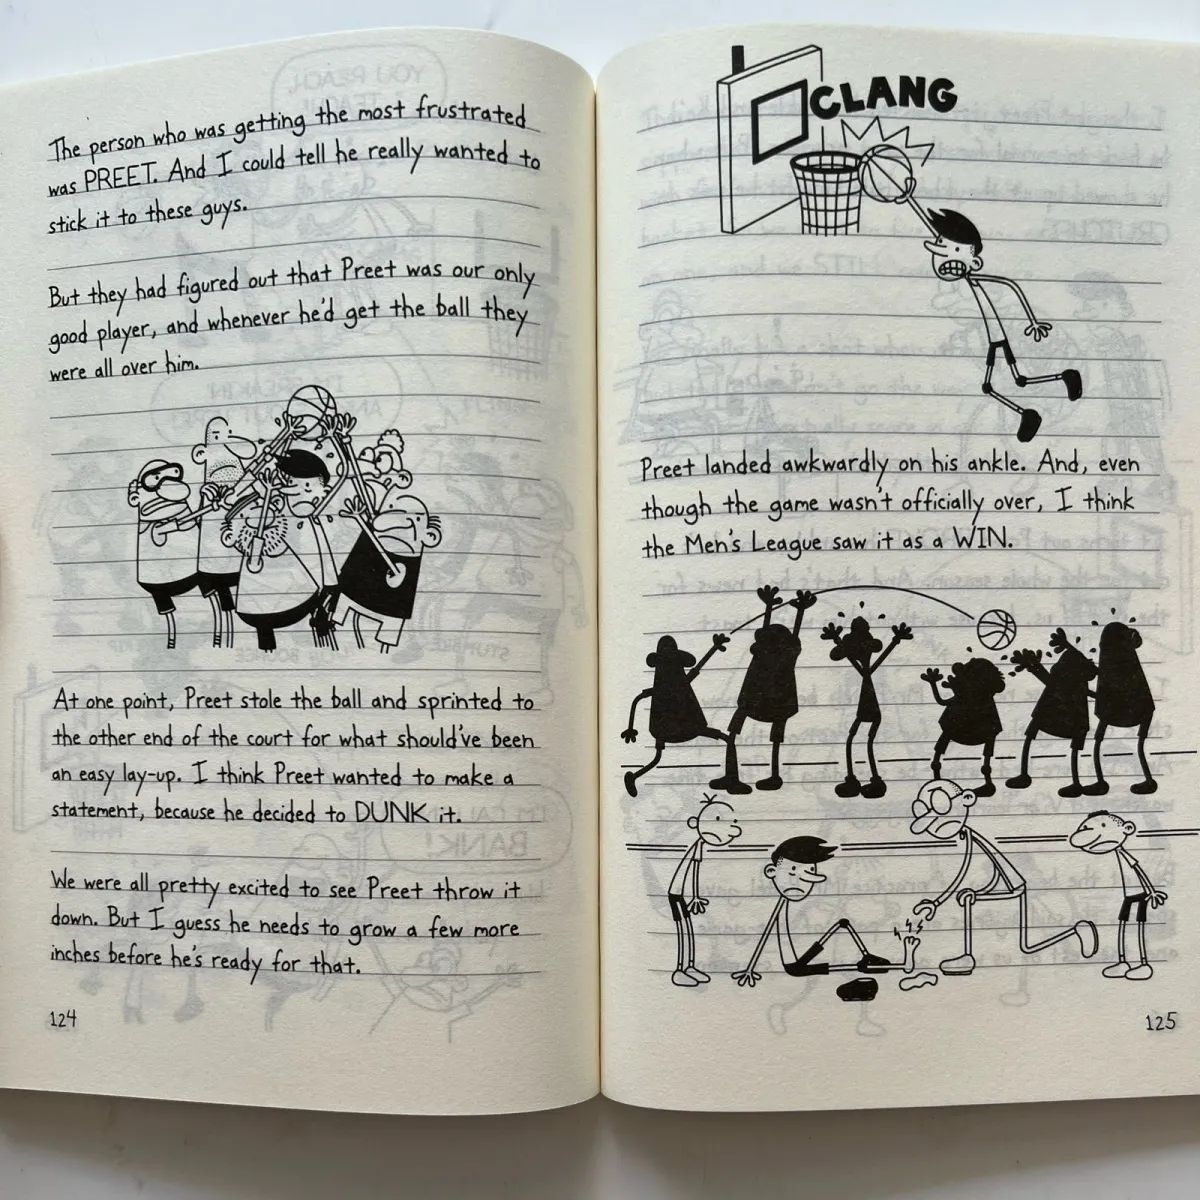 The person who was getting the most frustrated
was PREET. And I could tell he really wanted to
stick it to these guys.
But they had figured out that Preet was our only
good player, and whenever he'd get the ball they
were all over him.
At one point, Preet stole the ball and sprinted to
the other end of the court for what should've been
an easy lay-up. I think Preet wanted to make a
statement, because he decided to DUNK it.
We were all pretty excited to see Preet throw it
down. But I guess he needs to grow a few more
inches before he's ready for that.
124
CLANG
Preet landed awkwardly on his ankle. And, even
though the game wasn't officially over, I think
the Men's League saw it as a WIN.
125